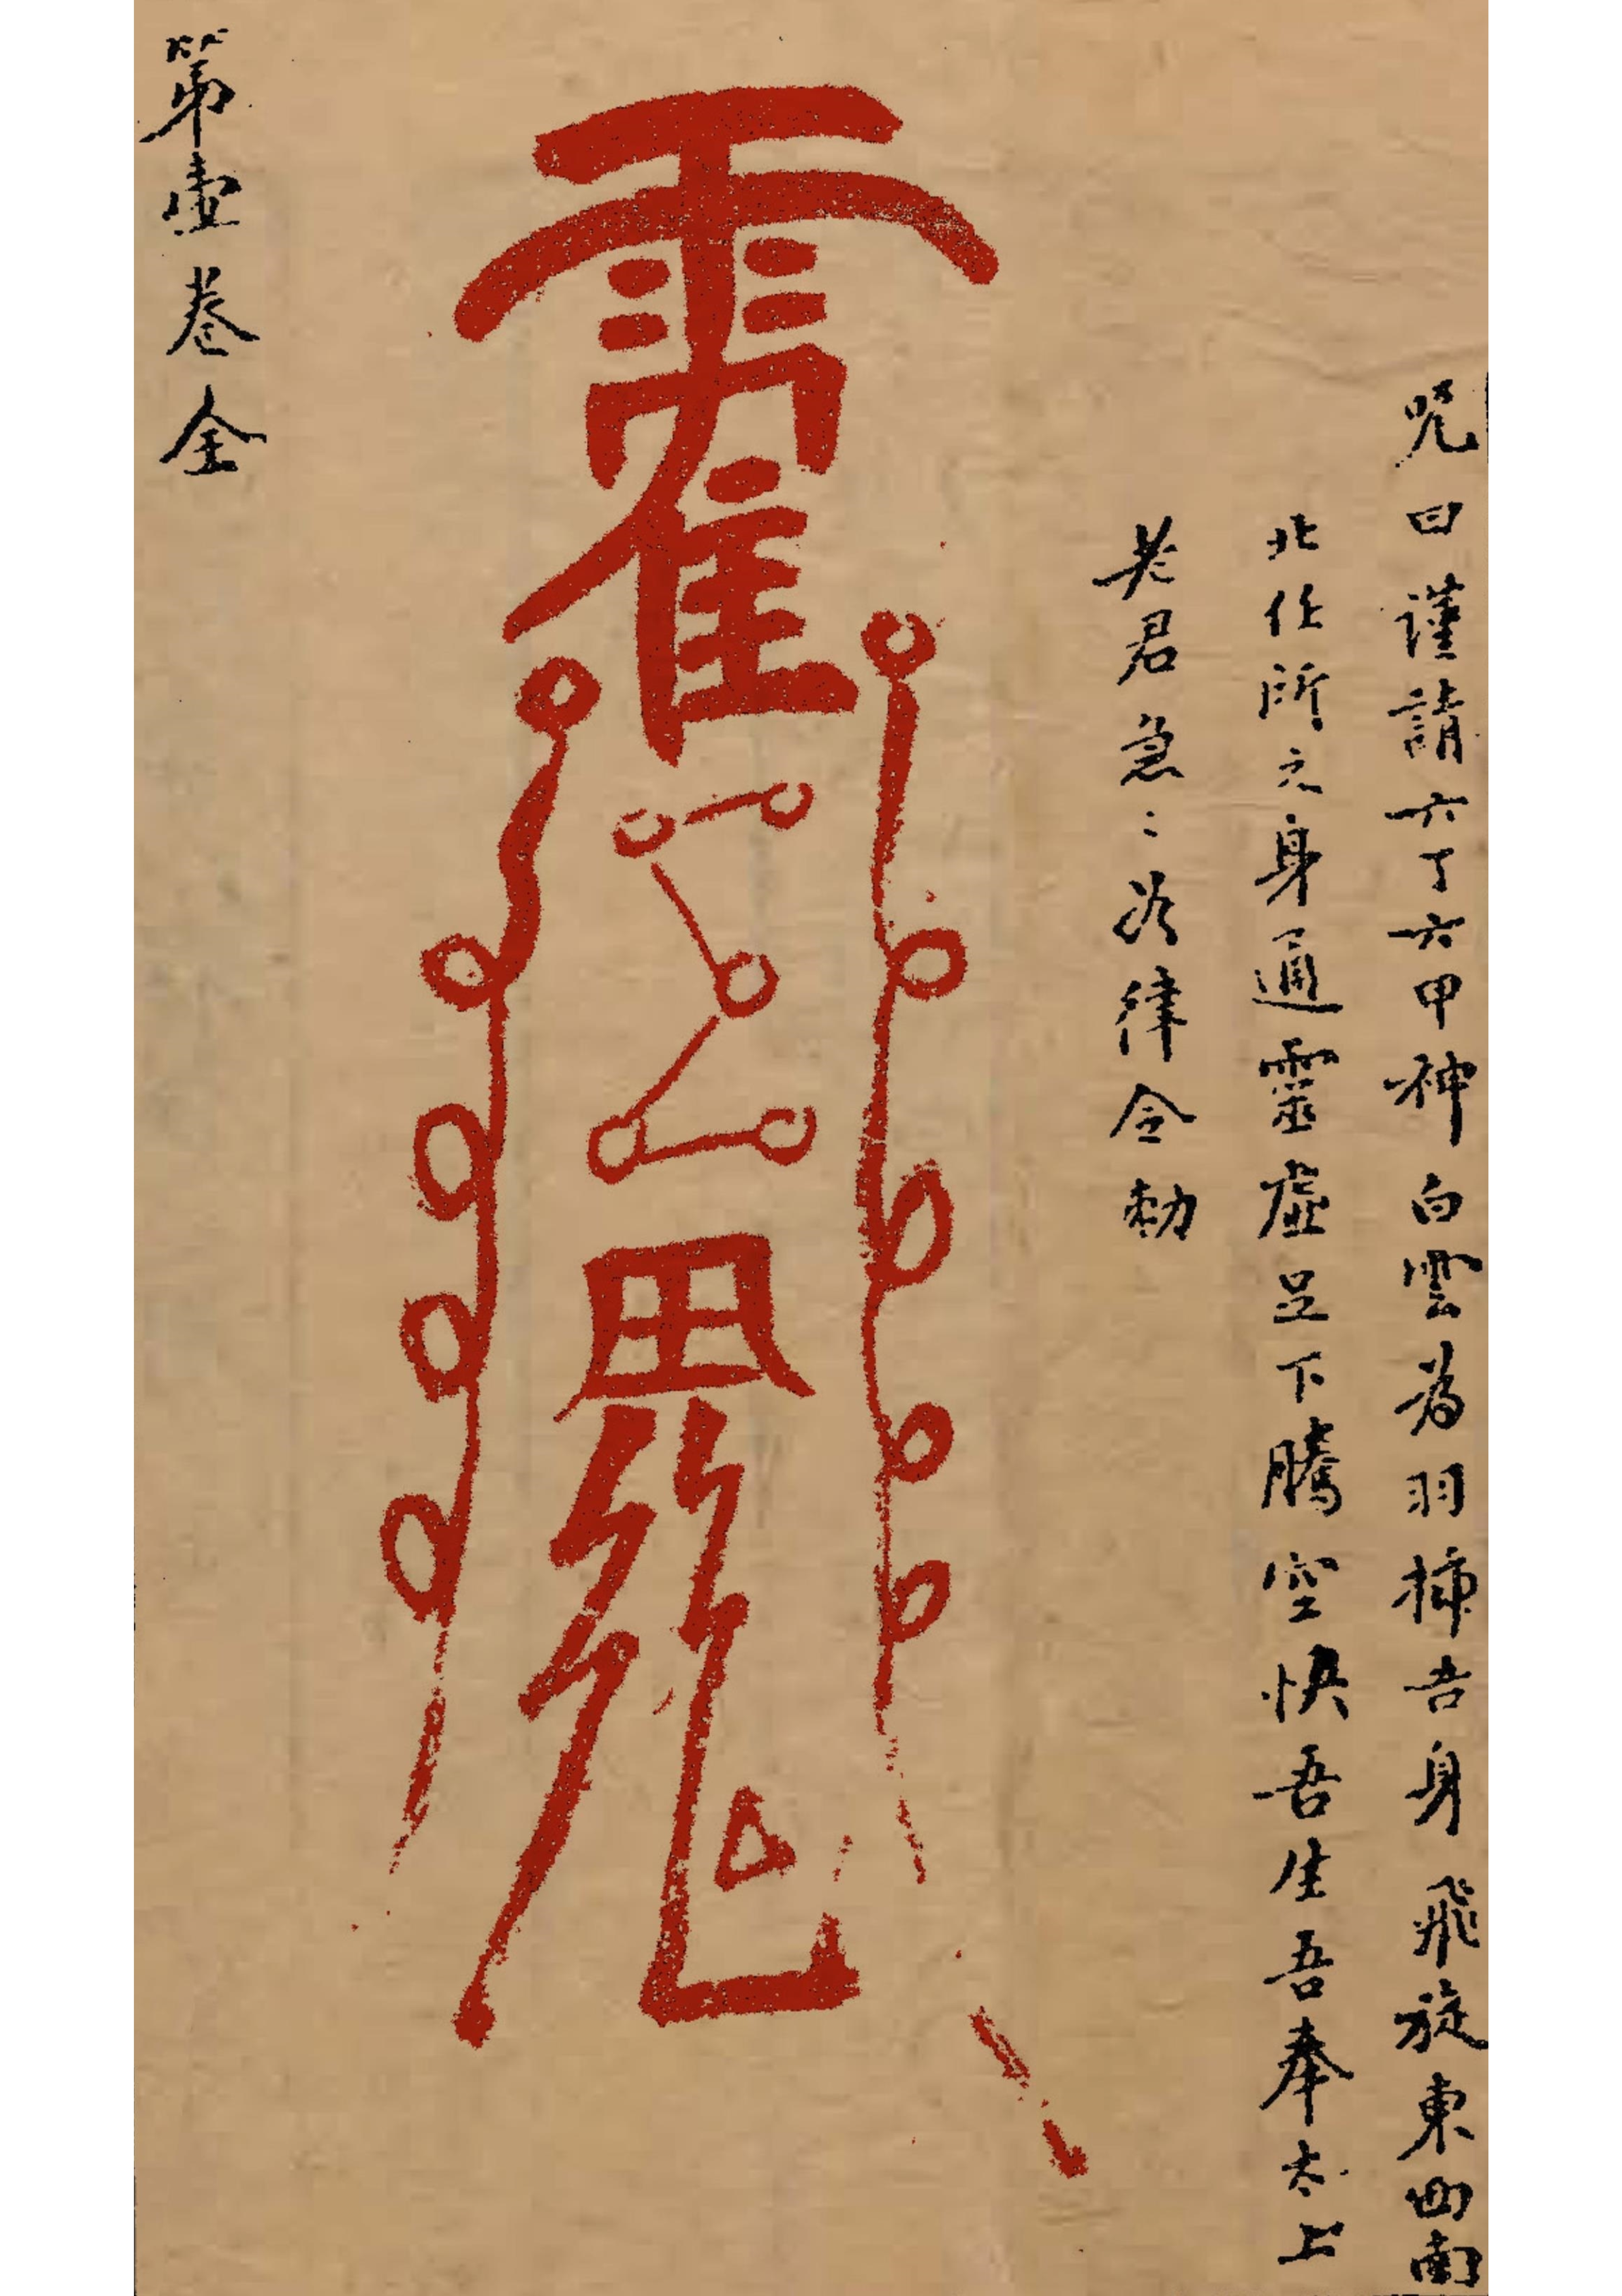 咒曰謹請六丁六甲神白雲為羽插吾身飛旋東西南
北任所之身通靈虛足下騰空快吾生吾奉太上
老君急〻如律令勅
第壹卷全